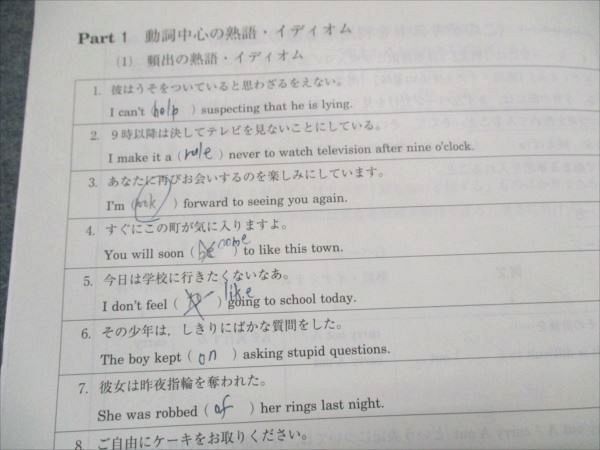 Part 1 動詞中心の熟語・イディオム
(1) 頻出の熟語・イディオム
1. 彼はうそをついていると思わざるをえない。
I can't ( help ) suspecting that he is lying.
2. 9時以降は決してテレビを見ないことにしている。
I make it a ( rule ) never to watch television after nine o'clock.
3. あなたに再びお会いするのを楽しみにしています。
I'm ( look ) forward to seeing you again.
4. すぐにこの町が気に入りますよ。
come
You will soon ( be ) to like this town.
5. 今日は学校に行きたくないなあ。
like
I don't feel ( ) going to school today.
6. その少年は、しきりにばかな質問をした。
The boy kept ( on ) asking stupid questions.
7. 彼女は昨夜指輪を奪われた。
She was robbed ( of ) her rings last night.
8. ご自由にケーキをお取りください。